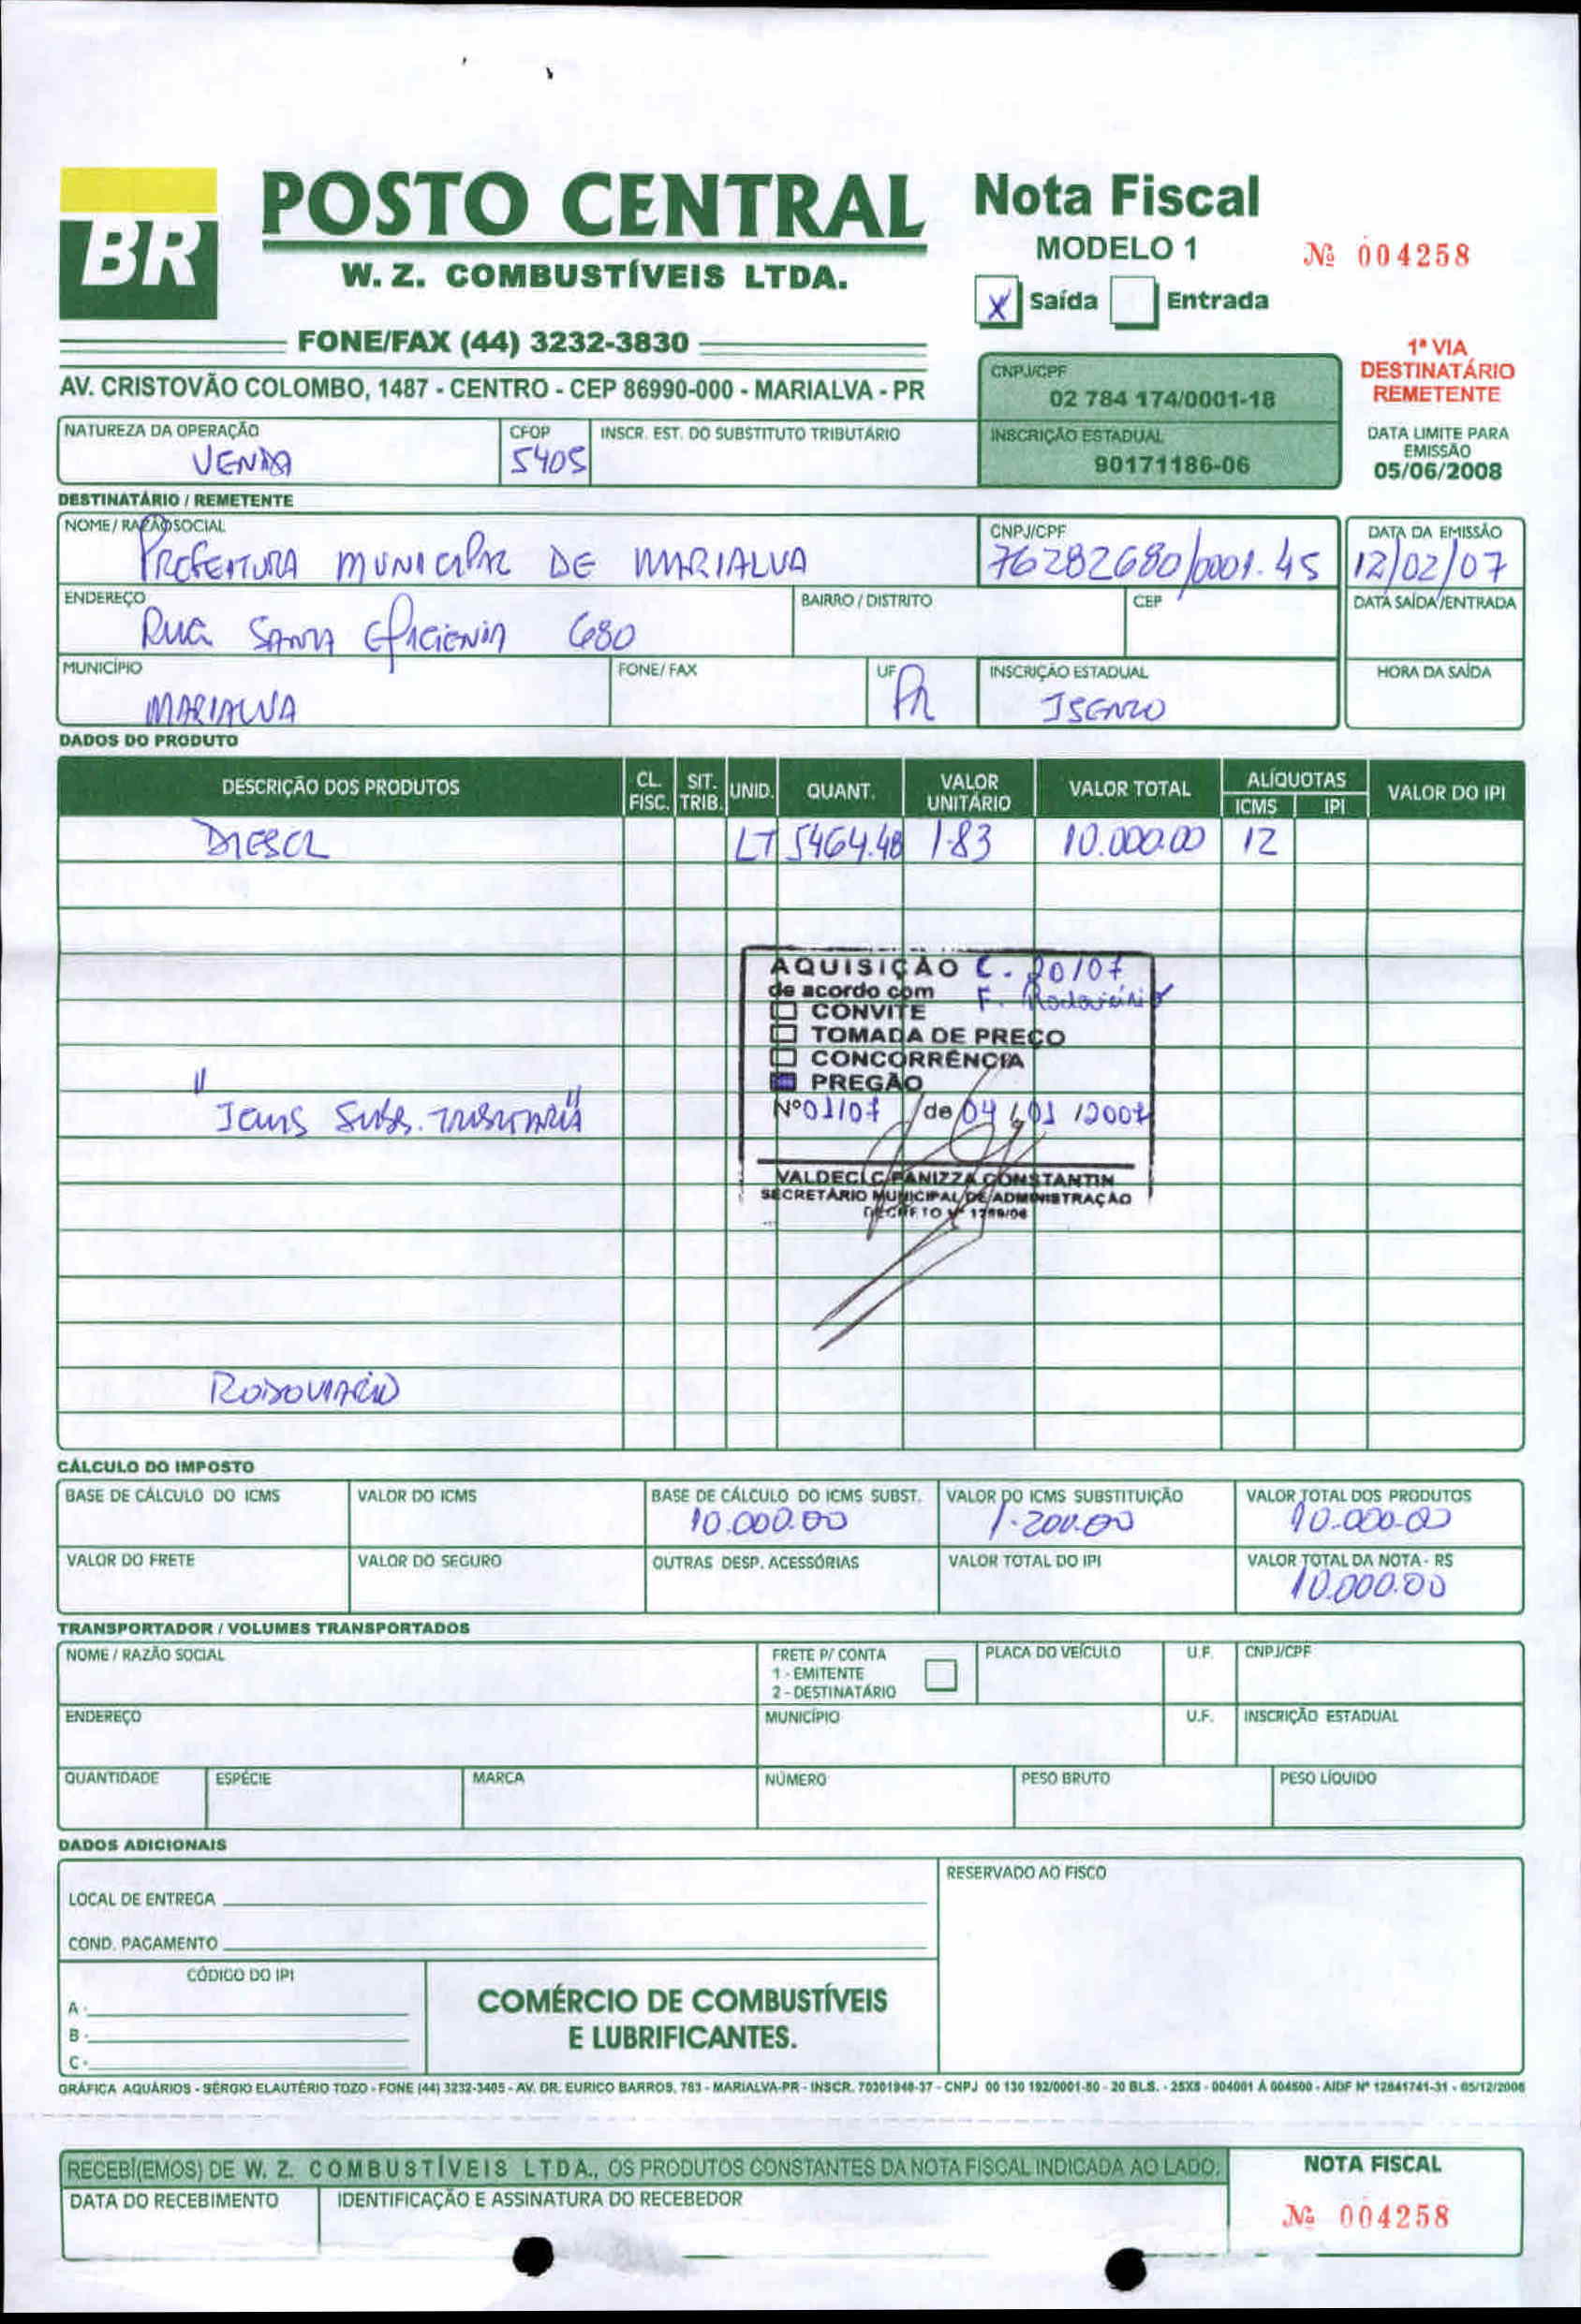 BR
POSTO CENTRAL
W. Z. COMBUSTÍVEIS LTDA.
FONE/FAX (44) 3232-3830
AV. CRISTOVÃO COLOMBO, 1487 - CENTRO - CEP 86990-000 - MARIALVA - PR
Nota Fiscal
MODELO 1
Nº 004258
X Saída Entrada
CNPJ/CPF
02 784 174/0001-18
INSCRIÇÃO ESTADUAL
90171186-06
1ª VIA
DESTINATÁRIO
REMETENTE
DATA LIMITE PARA
EMISSÃO
05/06/2008
NATUREZA DA OPERAÇÃO CFOP INSCR. EST. DO SUBSTITUTO TRIBUTÁRIO
VENDA 5405
DESTINATÁRIO / REMETENTE
NOME / RAZÃO SOCIAL CNPJ/CPF DATA DA EMISSÃO
PREFEITURA MUNICIPAL DE MARIALVA 76282680/0001.45 12/02/07
ENDEREÇO BAIRRO / DISTRITO CEP DATA SAÍDA/ENTRADA
Rua SANTA 680
MUNICÍPIO FONE/ FAX UF INSCRIÇÃO ESTADUAL HORA DA SAÍDA
MARIALVA PR ISENTO
DADOS DO PRODUTO
DESCRIÇÃO DOS PRODUTOS CL. FISC. SIT. TRIB. UNID. QUANT. VALOR UNITÁRIO VALOR TOTAL ALÍQUOTAS ICMS IPI VALOR DO IPI
DIESEL LT 5464.48 1.83 10.000.00 12
AQUISIÇÃO C. 20/07
de acordo com F. Rodoviário
CONVITE
TOMADA DE PREÇO
CONCORRÊNCIA
PREGÃO
Nº 01/07 de 04/01/2007
" Icms Subs. TRIBUTARIA "
VALDECI C. PANIZZA CONSTANTIN
SECRETÁRIO MUNICIPAL DE ADMINISTRAÇÃO
DECRETO Nº
RODOVIARIO
CÁLCULO DO IMPOSTO
BASE DE CÁLCULO DO ICMS VALOR DO ICMS BASE DE CÁLCULO DO ICMS SUBST. VALOR DO ICMS SUBSTITUIÇÃO VALOR TOTAL DOS PRODUTOS
10.000.00 1.200.00 10.000.00
VALOR DO FRETE VALOR DO SEGURO OUTRAS DESP. ACESSÓRIAS VALOR TOTAL DO IPI VALOR TOTAL DA NOTA - R$
10.000.00
TRANSPORTADOR / VOLUMES TRANSPORTADOS
NOME / RAZÃO SOCIAL FRETE P/ CONTA PLACA DO VEÍCULO U.F. CNPJ/CPF
1 - EMITENTE
2 - DESTINATÁRIO
ENDEREÇO MUNICÍPIO U.F. INSCRIÇÃO ESTADUAL
QUANTIDADE ESPÉCIE MARCA NÚMERO PESO BRUTO PESO LÍQUIDO
DADOS ADICIONAIS
RESERVADO AO FISCO
LOCAL DE ENTREGA
COND. PAGAMENTO
CÓDIGO DO IPI
A -
B -
C -
COMÉRCIO DE COMBUSTÍVEIS
E LUBRIFICANTES.
GRÁFICA AQUÁRIOS - SÉRGIO ELAUTÉRIO TOZO - FONE (44) 3232-3405 - AV. DR. EURICO BARROS, 783 - MARIALVA-PR - INSCR. 70301948-37 - CNPJ 00 130 192/0001-80 - 20 BLS. - 25X5 - 004001 À 004500 - AIDF Nº 12841741-31 - 05/12/2006
RECEBI(EMOS) DE W. Z. COMBUSTÍVEIS LTDA., OS PRODUTOS CONSTANTES DA NOTA FISCAL INDICADA AO LADO.
DATA DO RECEBIMENTO IDENTIFICAÇÃO E ASSINATURA DO RECEBEDOR
NOTA FISCAL
Nº 004258